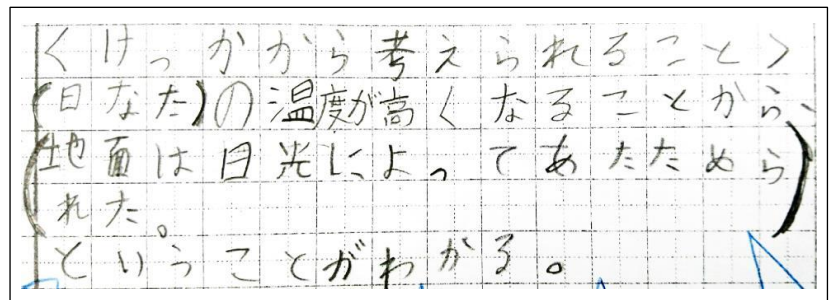 <けっかから考えられること>
(日なた)の温度が高くなることから、
(地面は日光によってあたためら
れた。)
ということがわかる。